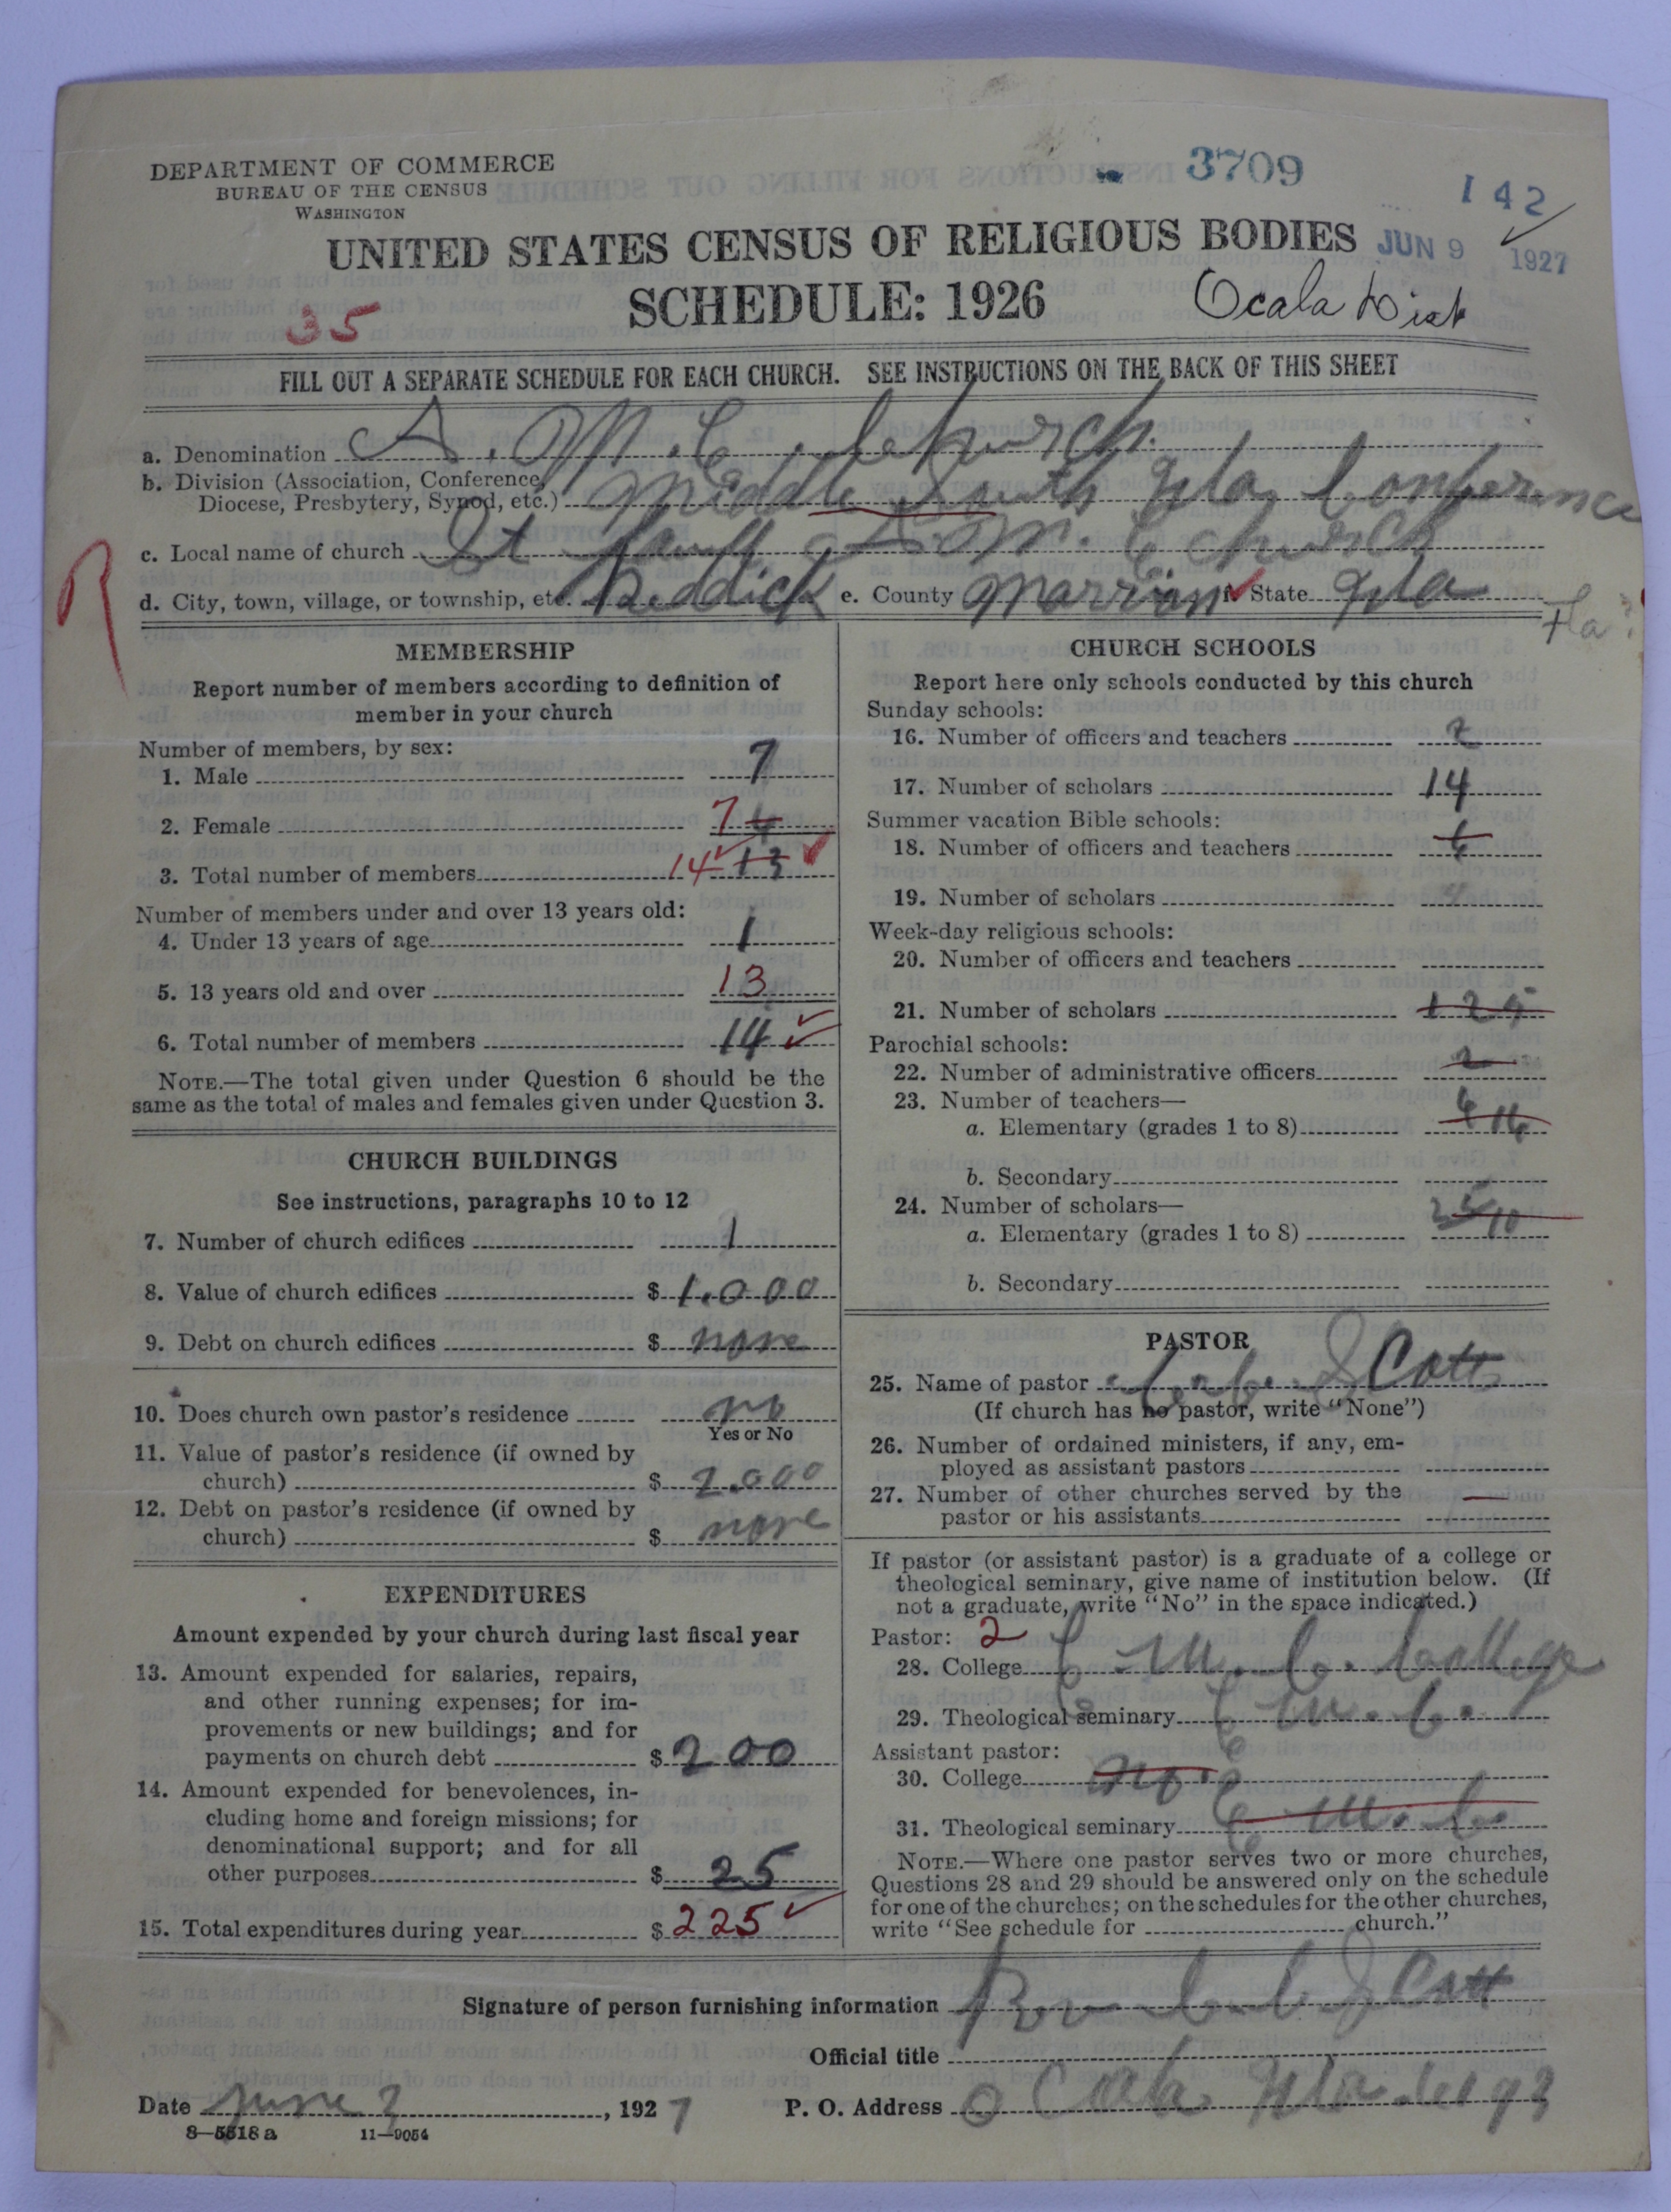 DEPARTMENT OF COMMERCE
BUREAU OF THE CENSUS
WASHINGTON
3709
142
JUN 9 1927
UNITED STATES CENSUS OF RELIGIOUS BODIES
SCHEDULE: 1926
Ocala Dist
35
FILL OUT A SEPARATE SCHEDULE FOR EACH CHURCH. SEE INSTRUCTIONS ON THE BACK OF THIS SHEET
a. Denomination A. M. E. Church.
b. Division (Association, Conference, Diocese, Presbytery, Synod, etc.) Middle South Fla. Conference
c. Local name of church St A. M. E church
d. City, town, village, or township, etc. Reddick e. County Marrion f. State Fla
Fla?
R
MEMBERSHIP
Report number of members according to definition of
member in your church
Number of members, by sex:
1. Male 7
2. Female 7 6
3. Total number of members 14 13
Number of members under and over 13 years old:
4. Under 13 years of age 1
5. 13 years old and over 13
6. Total number of members 14
NOTE.—The total given under Question 6 should be the
same as the total of males and females given under Question 3.
CHURCH BUILDINGS
See instructions, paragraphs 10 to 12
7. Number of church edifices 1
8. Value of church edifices $ 1.000
9. Debt on church edifices $ none
10. Does church own pastor's residence no
Yes or No
11. Value of pastor's residence (if owned by
church) $ 2.000
12. Debt on pastor's residence (if owned by
church) $ none
EXPENDITURES
Amount expended by your church during last fiscal year
13. Amount expended for salaries, repairs,
and other running expenses; for im-
provements or new buildings; and for
payments on church debt $ 200
14. Amount expended for benevolences, in-
cluding home and foreign missions; for
denominational support; and for all
other purposes $ 25
15. Total expenditures during year $ 225
CHURCH SCHOOLS
Report here only schools conducted by this church
Sunday schools:
16. Number of officers and teachers 2
17. Number of scholars 14
Summer vacation Bible schools:
18. Number of officers and teachers 6
19. Number of scholars
Week-day religious schools:
20. Number of officers and teachers
21. Number of scholars 125
Parochial schools:
22. Number of administrative officers 2
23. Number of teachers—
a. Elementary (grades 1 to 8)
b. Secondary
24. Number of scholars—
a. Elementary (grades 1 to 8)
b. Secondary
PASTOR
25. Name of pastor Scott
(If church has no pastor, write "None")
26. Number of ordained ministers, if any, em-
ployed as assistant pastors
27. Number of other churches served by the
pastor or his assistants —
If pastor (or assistant pastor) is a graduate of a college or
theological seminary, give name of institution below. (If
not a graduate, write "No" in the space indicated.)
Pastor: 2
28. College E. M. C. College
29. Theological seminary E M. C.
Assistant pastor:
30. College no.
31. Theological seminary E M. C.
NOTE.—Where one pastor serves two or more churches,
Questions 28 and 29 should be answered only on the schedule
for one of the churches; on the schedules for the other churches,
write "See schedule for church."
Signature of person furnishing information Rev Scott
Official title
Date June 3, 1927 P. O. Address Ocala Fla
8—5518 a 11—9054